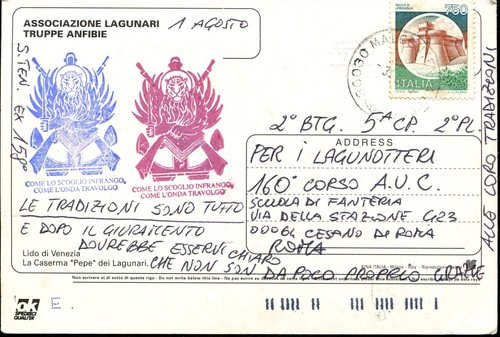 ASSOCIAZIONE LAGUNARI
TRUPPE ANFIBIE
1 AGOSTO
S.TEN. EX 158°
COME LO SCOGLIO INFRANGO,
COME L'ONDA TRAVOLGO
COME LO SCOGLIO INFRANGO,
COME L'ONDA TRAVOLGO
750
ITALIA
2° BTG. 5A CP. 2° PL.
ADDRESS
PER I LAGUNOTTERI
160° CORSO A.U.C.
SCUOLA DI FANTERIA
VIA DELLA STAZIONE 423
00061 CESANO DI ROMA
ROMA
LE TRADIZIONI SONO TUTTO
E DOPO IL GIURAMENTO
DOVREBBE ESSERVI CHIARO
CHE NON SON DA POCO PROPRIO GRAZIE
ALLE LORO TRADIZIONI
Lido di Venezia
La Caserma "Pepe" dei Lagunari.
Non scrivere al di sotto di questa riga - Do not write below this line
SPEDISCI
QUALITA'